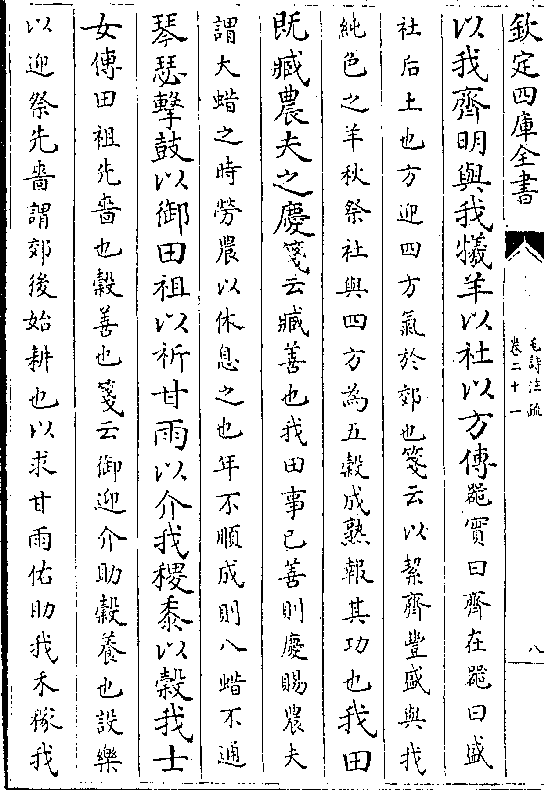 欽定四庫全書
毛詩注疏
卷二十一
八
以我齊明與我犧羊以社以方傳器實曰齊在器曰盛
社后土也方迎四方氣於郊也箋云以絜齊豐盛與我
純色之羊秋祭社與四方為五穀成熟報其功也我田
既臧農夫之慶箋云臧善也我田事已善則慶賜農夫
謂大蜡之時勞農以休息之也年不順成則八蜡不通
琴瑟擊鼓以御田祖以祈甘雨以介我稷黍以穀我士
女傳田祖先嗇也穀善也箋云御迎介助穀養也設樂
以迎祭先嗇謂郊後始耕也以求甘雨佑助我禾稼我